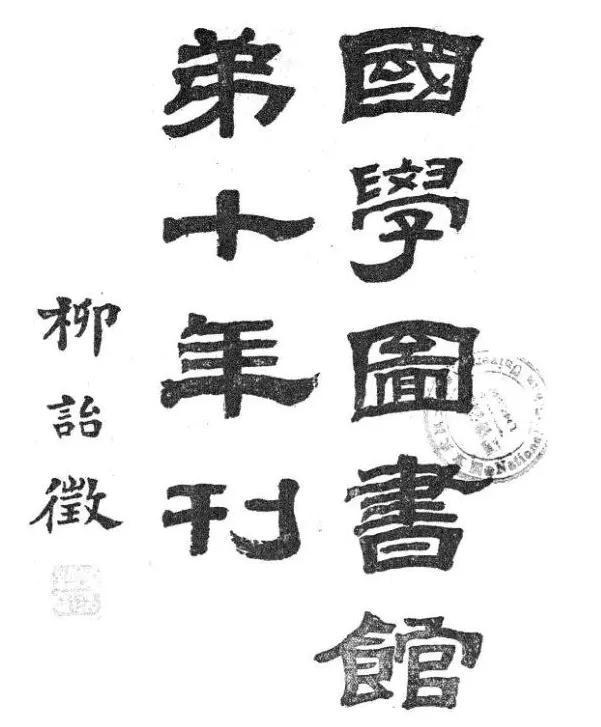 國學圖書館
弟十年刊
柳詒徵
National